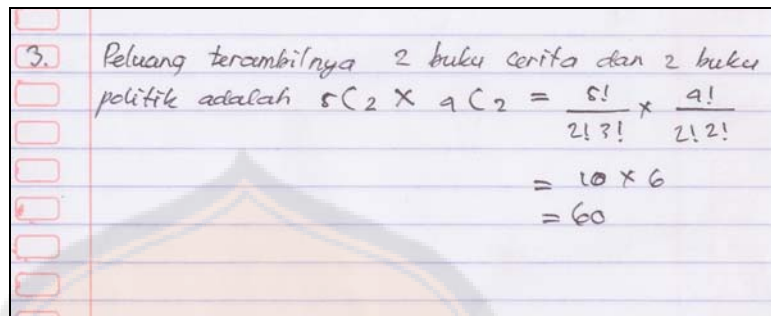 3. Peluang terambilnya 2 buku cerita dan 2 buku
politik adalah 5C2 × 4C2 = 5!/2!3! × 4!/2!2!
= 10 × 6
= 60